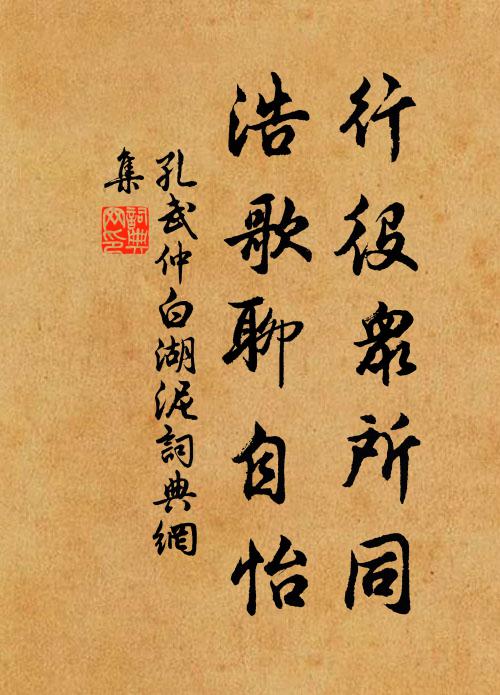 行役眾所同
浩歌聊自怡
孔武仲白湖泥詞典網
集
詞典
网印